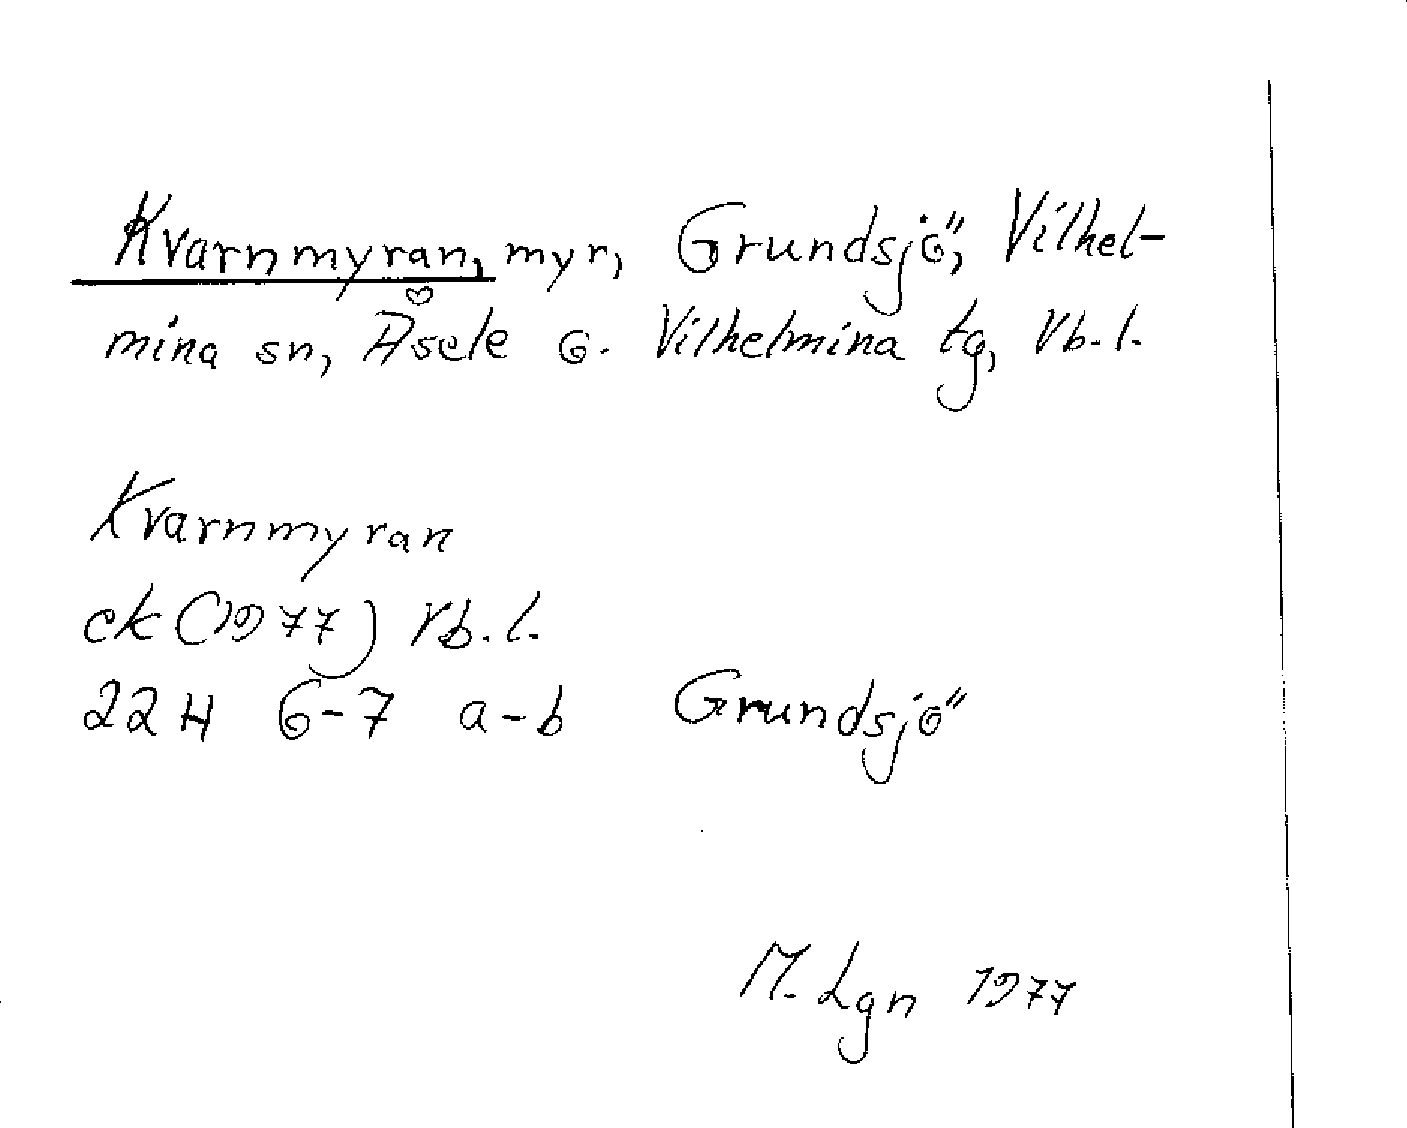 Kvarnmyran, myr, Grundsjö, Vilhel-
mina sn, Åsele G. Vilhelmina tg, Vb. l.
Kvarnmyran
ek (1977) Vb. l.
22H 6-7 a-b Grundsjö
M. Lgn 1977